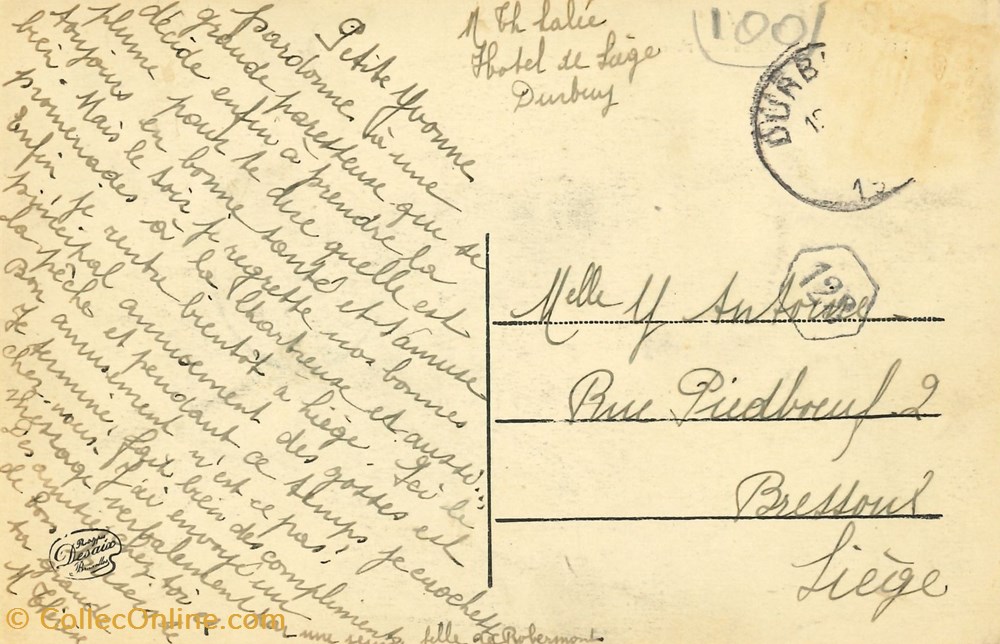 M Th Lalée
Hotel de Liège
Durbuy
100
DURB
Petite Yvonne
pardonne à une
grande paresseuse qui se
décide enfin à prendre la
plume pour te dire qu'elle est
toujours en bonne santé et s'amuse
bien. Mais le soir je regrette nos bonnes
promenades à la Chartreuse et aussi...
Enfin je rentre bientôt à Liège. Ici le
principal amusement des gosses est
la pêche et pendant ce temps je crochette
Bon amusement n'est ce pas!
Je termine, fait bien des compliments
chez vous. J'ai envoyé un
message verbalement par une
Les amitiés chez toi
de bons
ta
M Thérèse
fille de Robermont
Melle Y Antoine
128
Rue Piedboeuf 2
Bressoux
Liège
Desaix
Bruxelles
© CollecOnline.com